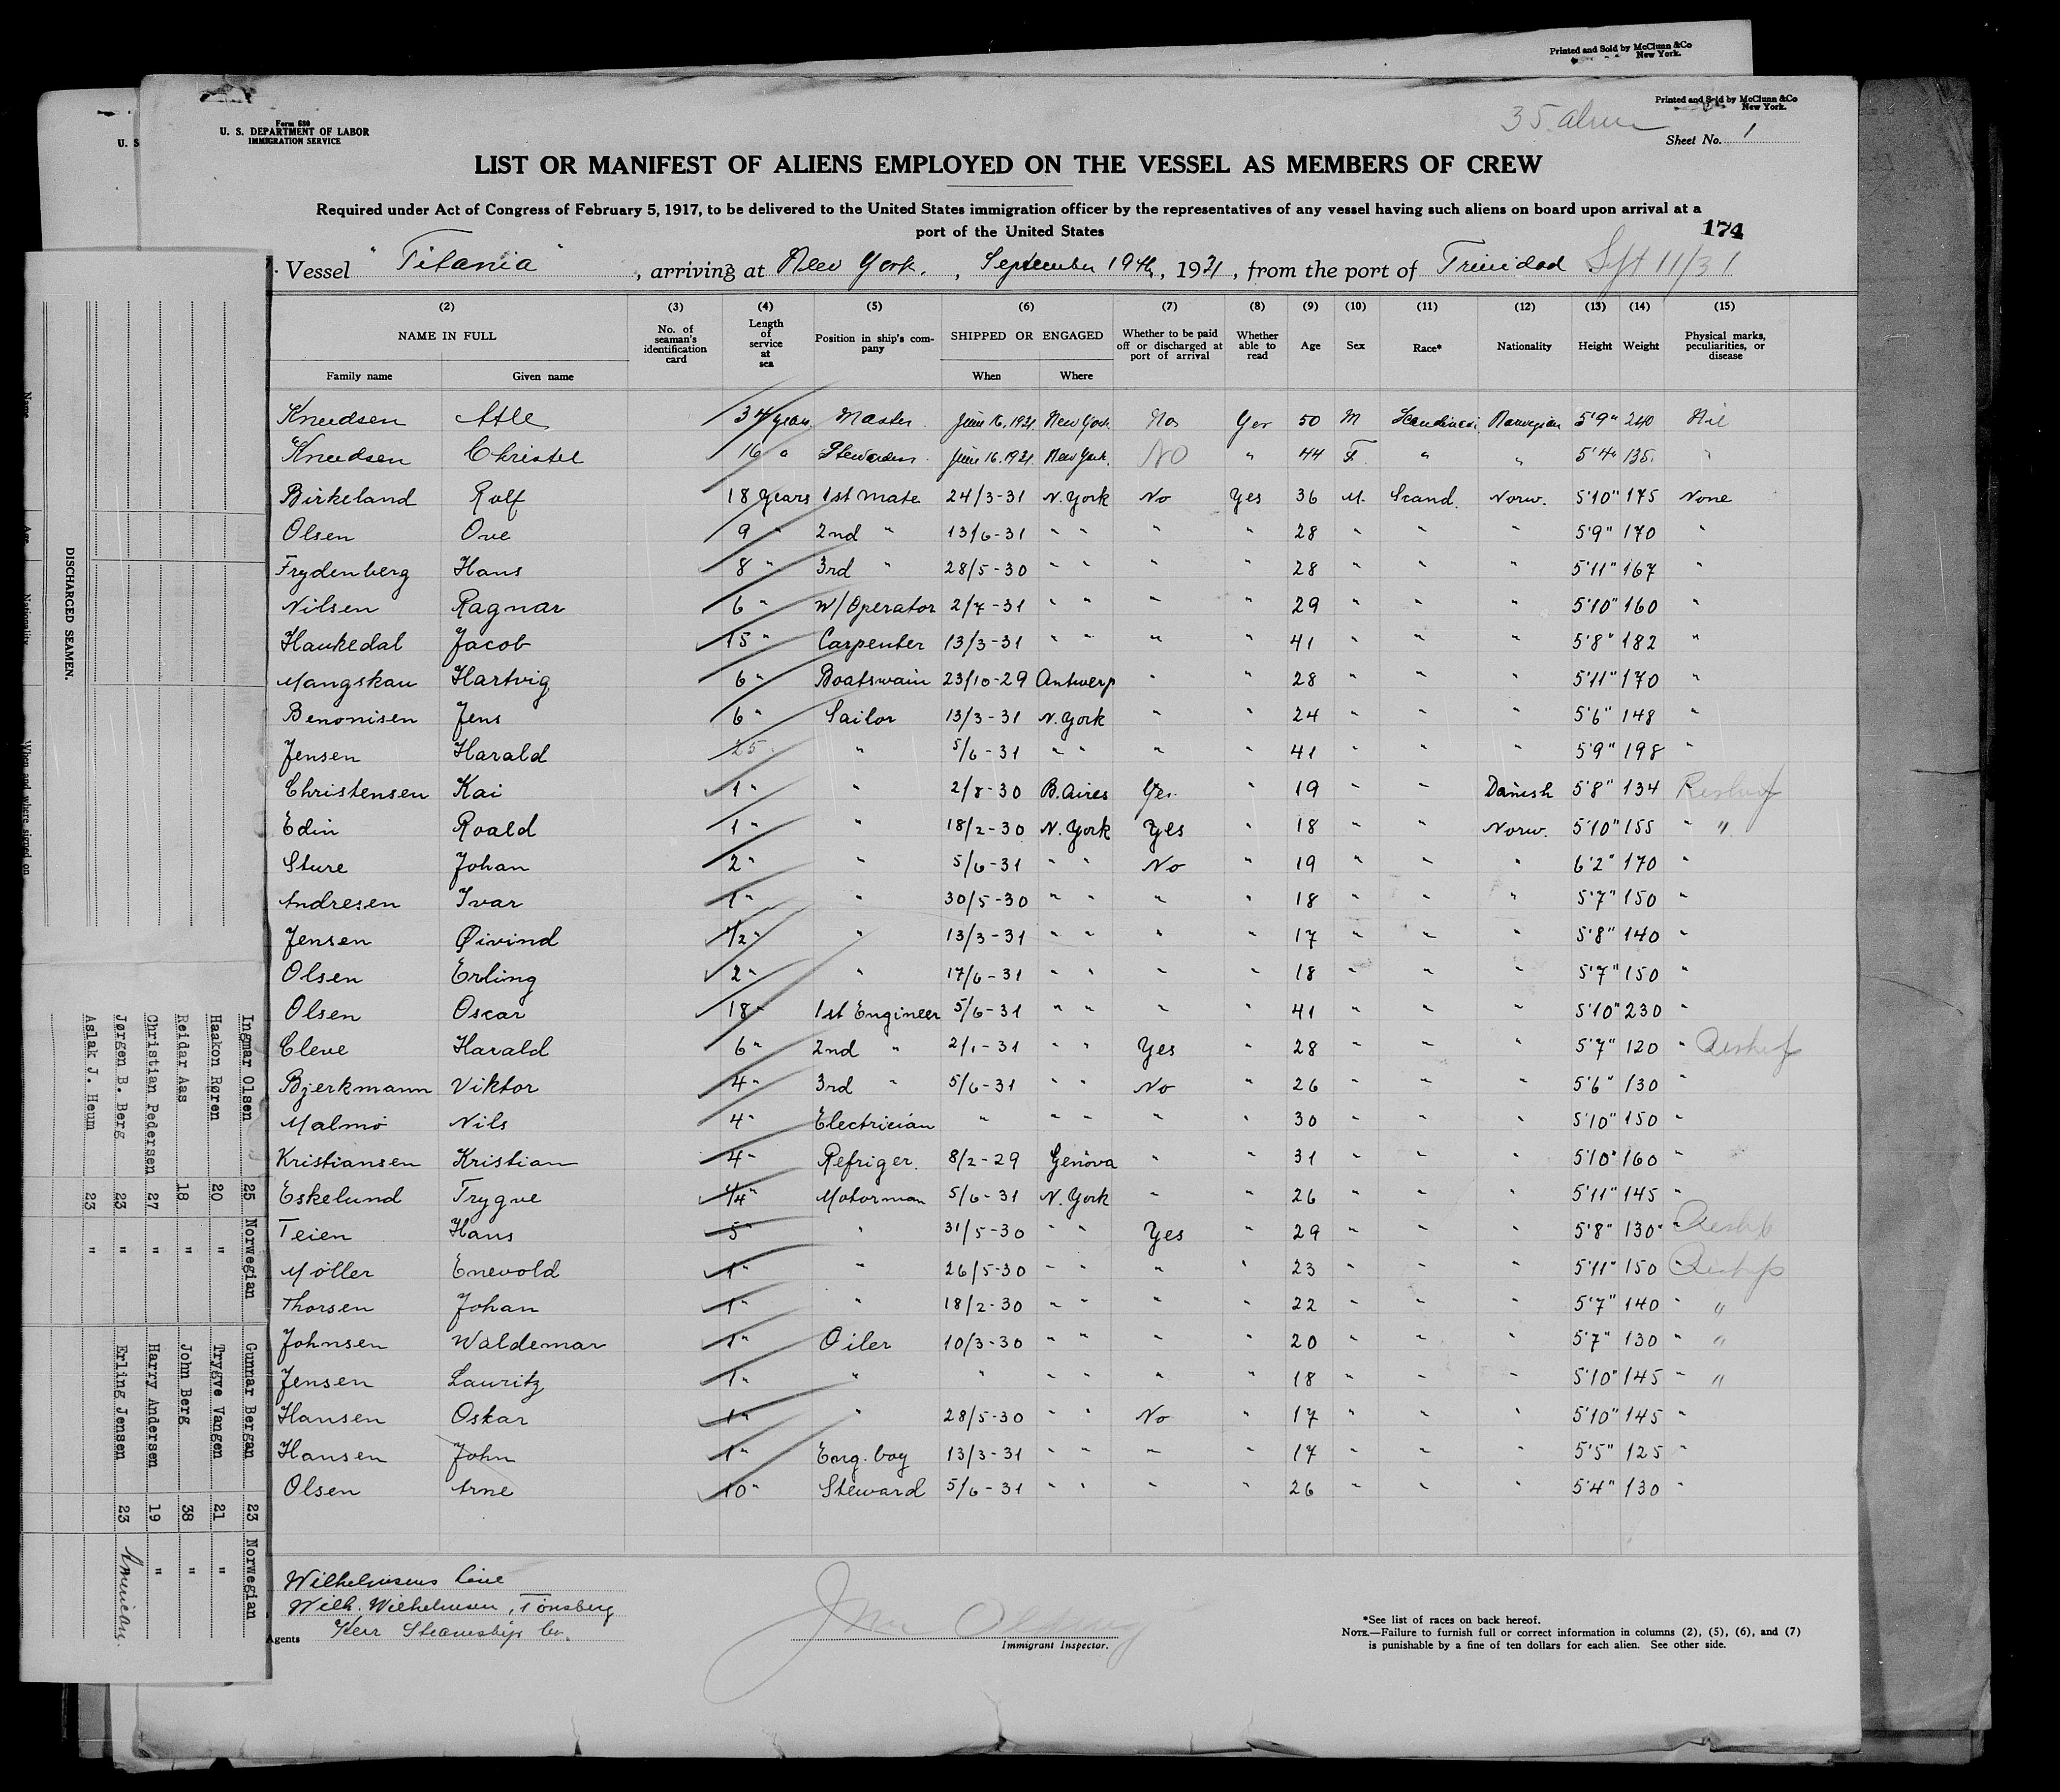 Printed and Sold by McClunn & Co
New York.
Printed and Sold by McClunn & Co
New York.
Form 680
U. S. DEPARTMENT OF LABOR
IMMIGRATION SERVICE
U. S
35
Sheet No. 1
LIST OR MANIFEST OF ALIENS EMPLOYED ON THE VESSEL AS MEMBERS OF CREW
Required under Act of Congress of February 5, 1917, to be delivered to the United States immigration officer by the representatives of any vessel having such aliens on board upon arrival at a
port of the United States
174
Vessel "Titania", arriving at New York, September 19th, 1931, from the port of Trinidad Sept 11/31
(2) (3) (4) (5) (6) (7) (8) (9) (10) (11) (12) (13) (14) (15)
NAME IN FULL No. of seaman's identification card Length of service at sea Position in ship's company SHIPPED OR ENGAGED Whether to be paid off or discharged at port of arrival Whether able to read Age Sex Race* Nationality Height Weight Physical marks, peculiarities, or disease
Family name Given name When Where
Knudsen Atle 34 years Master June 16, 1931 New York No Yes 50 M Norwegian 5'9" 240 Nil
Knudsen Christel 16 " Stewardess June 16. 1931 New York. NO " 44 F. " " 5'4" 135. "
Birkeland Rolf 18 Years 1st Mate 24/3-31 N. York No Yes 36 M. Scand. Norw. 5'10" 175 None
Olsen Ove 9 " 2nd " 13/6-31 " " " " 28 " " " 5'9" 170 "
Frydenberg Hans 8 " 3rd " 28/5-30 " " " " 28 " " " 5'11" 167 "
Nilsen Ragnar 6 " W/Operator 2/7-31 " " " " 29 " " " 5'10" 160 "
Haukedal Jacob 15 " Carpenter 13/3-31 " " " " 41 " " " 5'8" 182 "
Mangskau Hartvig 6 " Boatswain 23/10-29 Antwerp " " 28 " " " 5'11" 170 "
Benonisen Jens 6 " Sailor 13/3-31 N. York " " 24 " " " 5'6" 148 "
Jensen Harald 25 " 5/6-31 " " " " 41 " " " 5'9" 198 "
Christensen Kai 1 " " 2/8-30 B. Aires Yes " 19 " " Danish 5'8" 134
Edin Roald 1 " " 18/2-30 N. York Yes " 18 " " Norw. 5'10" 155 " "
Sture Johan 2 " " 5/6-31 " " No " 19 " " " 6'2" 170 "
Andresen Ivar 1 " " 30/5-30 " " " " 18 " " " 5'7" 150 "
Jensen Øivind 1/2 " " 13/3-31 " " " " 17 " " " 5'8" 140 "
Olsen Erling 2 " " 17/6-31 " " " " 18 " " " 5'7" 150 "
Olsen Oscar 18 " 1st Engineer 5/6-31 " " " " 41 " " " 5'10" 230 "
Cleve Harald 6 " 2nd " 2/1-31 " " Yes " 28 " " " 5'7" 120 "
Bjerkmann Viktor 4 " 3rd " 5/6-31 " " No " 26 " " " 5'6" 130 "
Malmö Nils 4 " Electrician " " " " " 30 " " " 5'10" 150 "
Kristiansen Kristian 4 " Refriger. 8/2-29 Genova " " 31 " " " 5'10" 160 "
Eskelund Trygve 1/4 " Motorman 5/6-31 N. York " " 26 " " " 5'11" 145 "
Teien Hans 5 " " 31/5-30 " " Yes " 29 " " " 5'8" 130 "
Möller Enevold 1 " " 26/5-30 " " " " 23 " " " 5'11" 150 "
Thorsen Johan 1 " " 18/2-30 " " " " 22 " " " 5'7" 140 " "
Johnsen Waldemar 1 " Oiler 10/3-30 " " " " 20 " " " 5'7" 130 " "
Jensen Lauritz 1 " " " " " " " 18 " " " 5'10" 145 " "
Hansen Oskar 1 " " 28/5-30 " " No " 17 " " " 5'10" 145 "
Hansen John 1 " Eng. boy 13/3-31 " " " " 17 " " " 5'5" 125 "
Olsen Arne 10 " Steward 5/6-31 " " " " 26 " " " 5'4" 130 "
Wilhelmsens Line
Wilh. Wilhelmsen, Tönsberg
Agents Kerr Steamship Co.
Immigrant Inspector.
*See list of races on back hereof.
NOTE.—Failure to furnish full or correct information in columns (2), (5), (6), and (7)
is punishable by a fine of ten dollars for each alien. See other side.
DISCHARGED SEAMEN.
Name Age Nationality When and where signed on
Ingmar Olsen 25 Norwegian
Haakon Røren 20 "
Reidar Aas 18 "
Christian Pedersen 27 "
Jørgen B. Berg 23 "
Aslak J. Heum 23 "
Gunnar Bergan 23 Norwegian
Trygve Vangen 21 "
John Berg 38 "
Harry Andersen 19 "
Erling Jensen 23 American